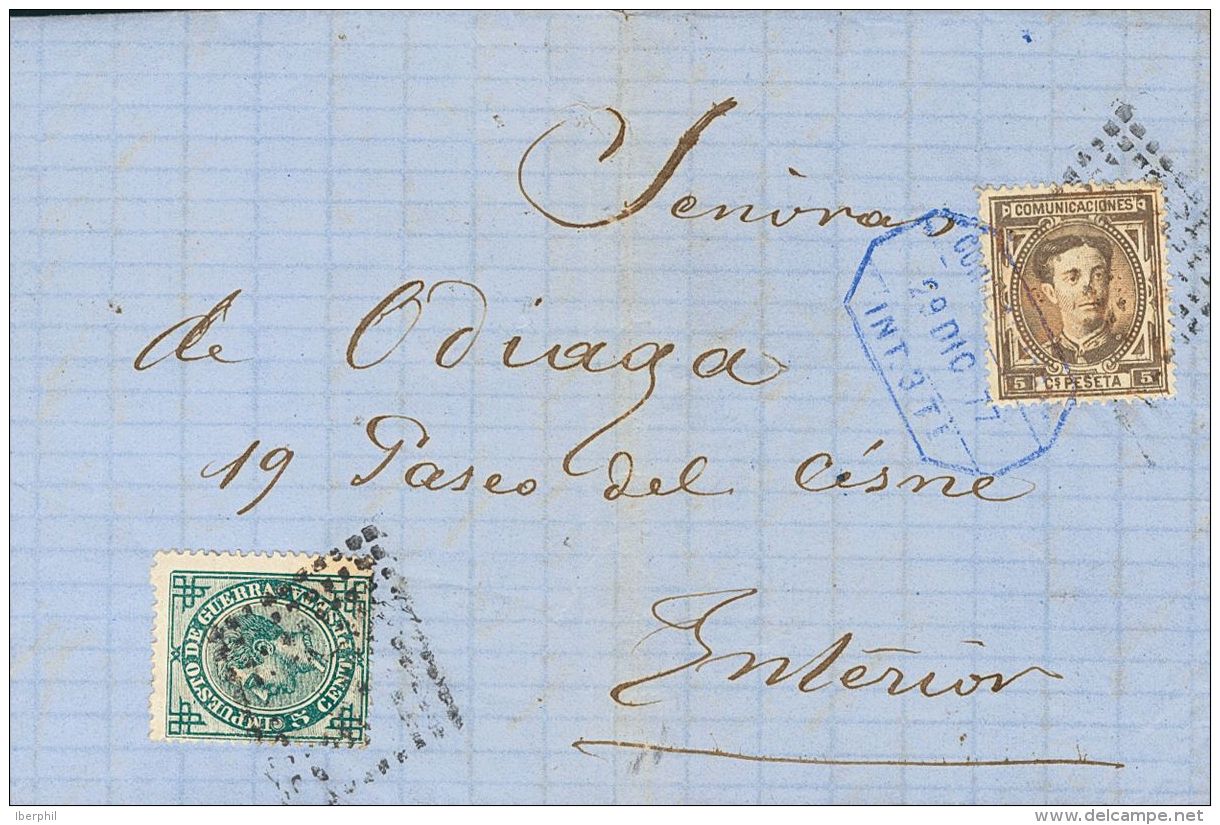 Senora
de Odiaga
19 Paseo del Cisne
Interior
COMUNICACIONES
5 Cs PESETA 5
29 DIC 77
INT. 3 T
IMPUESTO DE GUERRA
5 CENT. PESETA
Iberphil
delcampe.net